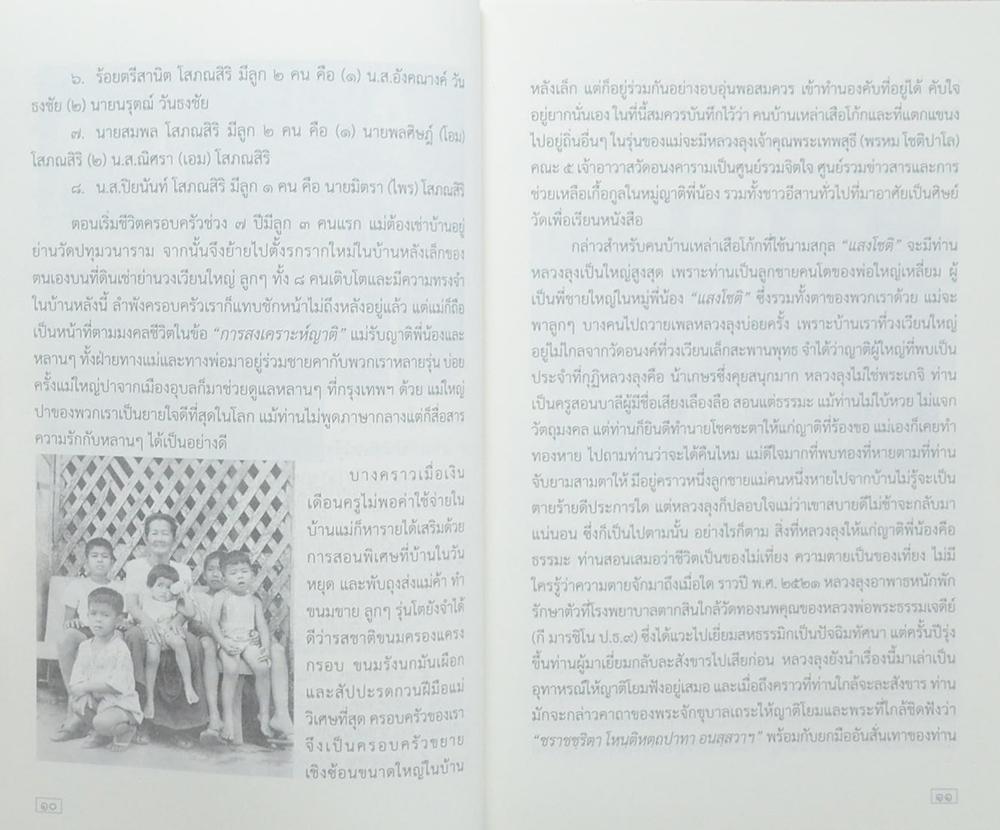 ๖. ร้อยตรีสานิต โสภณสิริ มีลูก ๒ คน คือ (๑) น.ส.อังคณางค์ วัน
ธงชัย (๒) นายนรุตณ์ วันธงชัย
๗. นายสมพล โสภณสิริ มีลูก ๒ คน คือ (๑) นายพลศิษฎ์ (โอม)
โสภณสิริ (๒) น.ส.ณิศรา (เอม) โสภณสิริ
๘. น.ส.ปิยนันท์ โสภณสิริ มีลูก ๑ คน คือ นายมิตรา (ไพร) โสภณสิริ
ตอนเริ่มชีวิตครอบครัวช่วง ๗ ปีมีลูก ๓ คนแรก แม่ต้องเช่าบ้านอยู่
ย่านวัดปทุมวนาราม จากนั้นจึงย้ายไปตั้งรกรากใหม่ในบ้านหลังเล็กของ
ตนเองบนที่ดินเช่าย่านวงเวียนใหญ่ ลูกๆ ทั้ง ๘ คนเติบโตและมีความทรงจำ
ในบ้านหลังนี้ ลำพังครอบครัวเราก็แทบชักหน้าไม่ถึงหลังอยู่แล้ว แต่แม่ก็ถือ
เป็นหน้าที่ตามมงคลชีวิตในข้อ “การสงเคราะห์ญาติ” แม่รับญาติพี่น้องและ
หลานๆ ทั้งฝ่ายทางแม่และทางพ่อมาอยู่ร่วมชายคากับพวกเราหลายรุ่น บ่อย
ครั้งแม่ใหญ่ปาจากเมืองอุบลก็มาช่วยดูแลหลานๆ ที่กรุงเทพฯ ด้วย แม่ใหญ่
ปาของพวกเราเป็นยายใจดีที่สุดในโลก แม้ท่านไม่พูดภาษากลางแต่ก็สื่อสาร
ความรักกับหลานๆ ได้เป็นอย่างดี
บางคราวเมื่อเงิน
เดือนครูไม่พอค่าใช้จ่ายใน
บ้านแม่ก็หารายได้เสริมด้วย
การสอนพิเศษที่บ้านในวัน
หยุด และพับถุงส่งแม่ค้า ทำ
ขนมขาย ลูกๆ รุ่นโตยังจำได้
ดีว่ารสชาติขนมครองแครง
กรอบ ขนมรังนกมันเผือก
และสัปปะรดกวนฝีมือแม่
วิเศษที่สุด ครอบครัวของเรา
จึงเป็นครอบครัวขยาย
เชิงซ้อนขนาดใหญ่ในบ้าน
๑๐
หลังเล็ก แต่ก็อยู่ร่วมกันอย่างอบอุ่นพอสมควร เข้าทำนองคับที่อยู่ได้ คับใจ
อยู่ยากนั่นเอง ในที่นี้สมควรบันทึกไว้ว่า คนบ้านเหล่าเสือโก้กและที่แตกแขนง
ไปอยู่ถิ่นอื่นๆ ในรุ่นของแม่จะมีหลวงลุงเจ้าคุณพระเทพสุธี (พรหม โชติปาโล)
คณะ ๕ เจ้าอาวาสวัดอนงคารามเป็นศูนย์รวมจิตใจ ศูนย์รวมข่าวสารและการ
ช่วยเหลือเกื้อกูลในหมู่ญาติพี่น้อง รวมทั้งชาวอีสานทั่วไปที่มาอาศัยเป็นศิษย์
วัดเพื่อเรียนหนังสือ
กล่าวสำหรับคนบ้านเหล่าเสือโก้กที่ใช้นามสกุล “แสงโชติ” จะมีท่าน
หลวงลุงเป็นใหญ่สูงสุด เพราะท่านเป็นลูกชายคนโตของพ่อใหญ่เหลี่ยม ผู้
เป็นพี่ชายใหญ่ในหมู่พี่น้อง “แสงโชติ” ซึ่งรวมทั้งตาของพวกเราด้วย แม่จะ
พาลูกๆ บางคนไปถวายเพลหลวงลุงบ่อยครั้ง เพราะบ้านเราที่วงเวียนใหญ่
อยู่ไม่ไกลจากวัดอนงค์ที่วงเวียนเล็กสะพานพุทธ จำได้ว่าญาติผู้ใหญ่ที่พบเป็น
ประจำที่กุฏิหลวงลุงคือ น้าเกษรซึ่งคุยสนุกมาก หลวงลุงไม่ใช่พระเกจิ ท่าน
เป็นครูสอนบาลีผู้มีชื่อเสียงเลืองลือ สอนแต่ธรรมะ แม้ท่านไม่ใบ้หวย ไม่แจก
วัตถุมงคล แต่ท่านก็ยินดีทำนายโชคชะตาให้แก่ญาติที่ร้องขอ แม่เองก็เคยทำ
ทองหาย ไปถามท่านว่าจะได้คืนไหม แม่ดีใจมากที่พบทองที่หายตามที่ท่าน
จับยามสามตาให้ มีอยู่คราวหนึ่งลูกชายแม่คนหนึ่งหายไปจากบ้านไม่รู้จะเป็น
ตายร้ายดีประการใด แต่หลวงลุงก็ปลอบใจแม่ว่าเขาสบายดีไม่ช้าจะกลับมา
แน่นอน ซึ่งก็เป็นไปตามนั้น อย่างไรก็ตาม สิ่งที่หลวงลุงให้แก่ญาติพี่น้องคือ
ธรรมะ ท่านสอนเสมอว่าชีวิตเป็นของไม่เที่ยง ความตายเป็นของเที่ยง ไม่มี
ใครรู้ว่าความตายจักมาถึงเมื่อใด ราวปี พ.ศ. ๒๕๒๑ หลวงลุงอาพาธหนักพัก
รักษาตัวที่โรงพยาบาลตากสินใกล้วัดทองนพคุณของหลวงพ่อพระธรรมเจดีย์
(กี มารชิโน ป.ธ.๙) ซึ่งได้แวะไปเยี่ยมสหธรรมิกเป็นปัจฉิมทัศนา แต่ครั้นปีรุ่ง
ขึ้นท่านผู้มาเยี่ยมกลับละสังขารไปเสียก่อน หลวงลุงยังนำเรื่องนี้มาเล่าเป็น
อุทาหรณ์ให้ญาติโยมฟังอยู่เสมอ และเมื่อถึงคราวที่ท่านใกล้จะละสังขาร ท่าน
มักจะกล่าวคาถาของพระจักขุบาลเถระให้ญาติโยมและพระที่ใกล้ชิดฟังว่า
“ชราชชฺริตา โหนฺติหตฺถปาทา อนสฺสวาฯ” พร้อมกับยกมืออันสั่นเทาของท่าน
๑๑